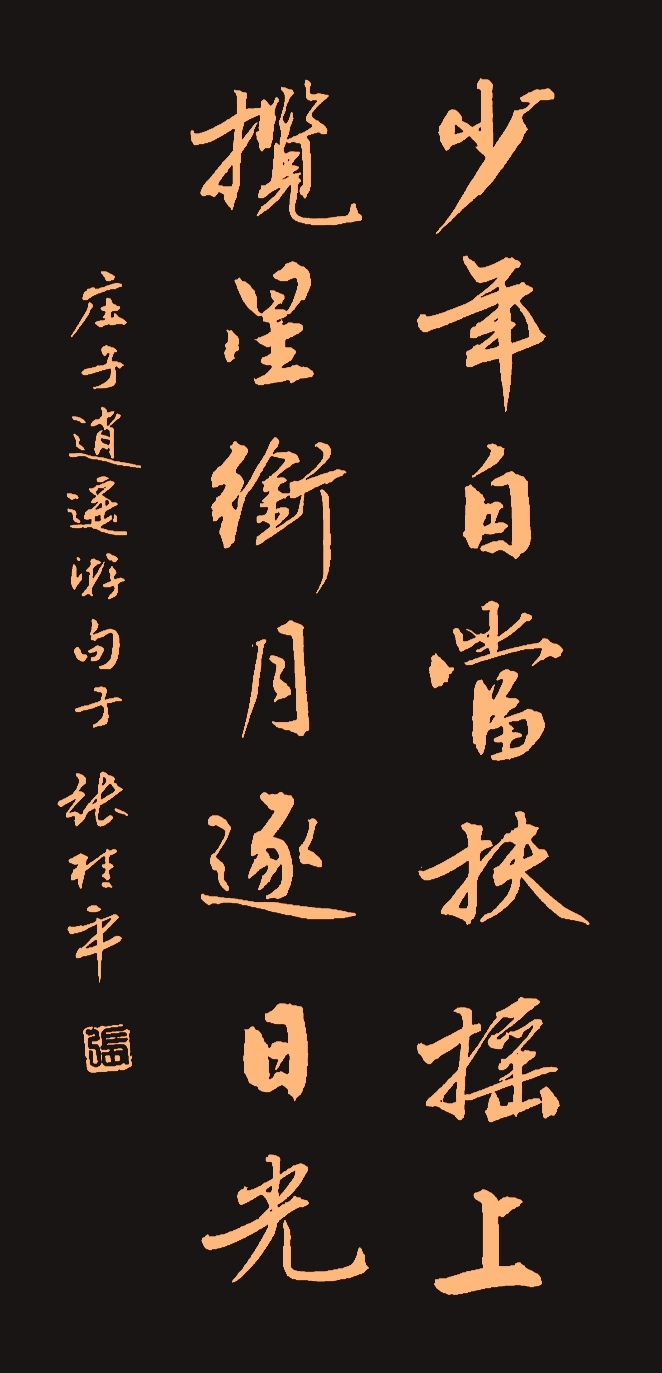 少年自當扶摇上
攬星銜月逐日光
庄子逍遥游句子 张桂平
張